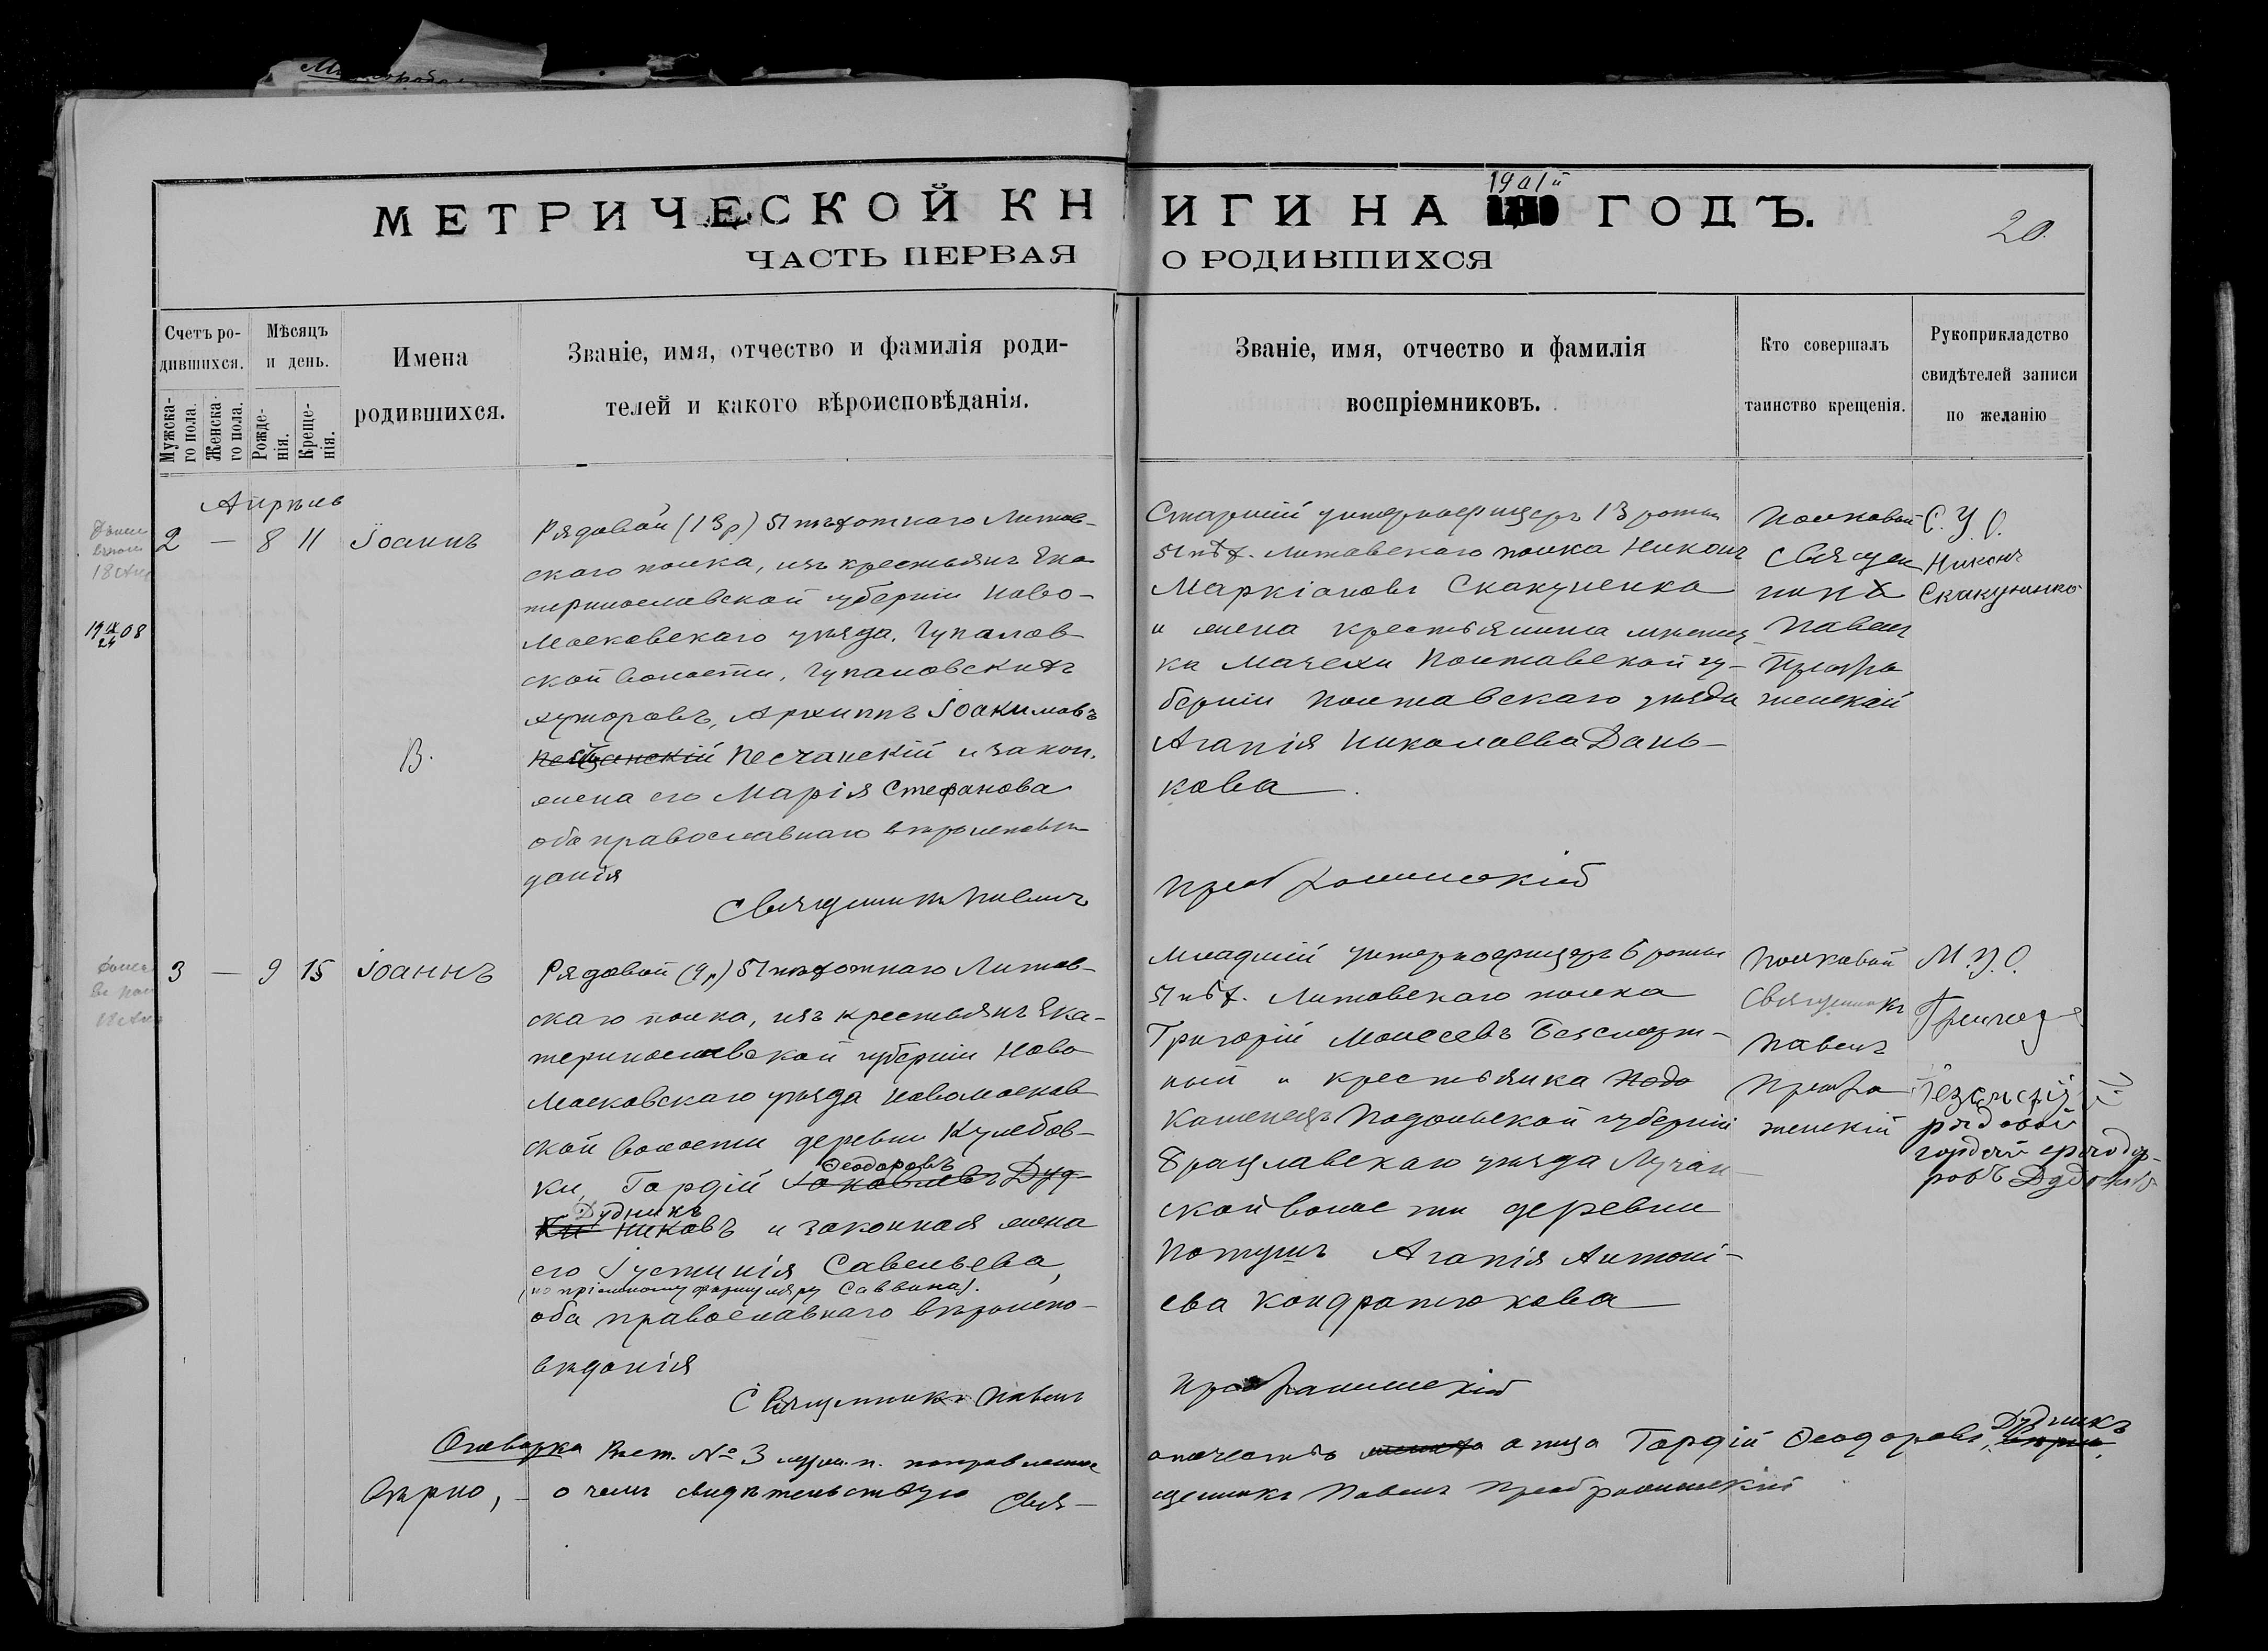 МЕТРИЧЕСКОЙ КНИГИ НА 1901й ГОДЪ.
20.
ЧАСТЬ ПЕРВАЯ О РОДИВШИХСЯ
Счетъ ро-
дившихся.
Мужска-
го пола.
Женска-
го пола.
Мѣсяцъ
и день.
Рожде-
нія.
Креще-
нія.
Имена
родившихся.
Званіе, имя, отчество и фамилія роди-
телей и какого вѣроисповѣданія.
Званіе, имя, отчество и фамилія
воспріемниковъ.
Кто совершалъ
таинство крещенія.
Рукоприкладство
свидѣтелей записи
по желанію
Апрѣль
2 — 8 11 Іоаннъ
19 IX/24 08
В.
Рядовой (13 р) 51 пѣхотнаго Литов-
скаго полка, изъ крестьянъ Ека-
теринославской губерніи Ново-
Московскаго уѣзда, Гупалов-
ской волости, Гупаловскихъ
хуторовъ, Архиппъ Іоакимовъ
Песчанскій и закон.
жена его Марія Стефанова
оба православнаго вѣроисповѣ-
данія
Священникъ Павелъ
Старшій унтерофицеръ 13 роты
51 пѣх. Литовскаго полка Никонъ
Маркіановъ Скакуненко
и жена крестьянина мѣстеч-
ка Мачехи Полтавской гу-
берніи Полтавскаго уѣзда
Агапія Николаева Дань-
кова.
Преображенскій
Полковой
священ
никъ
Павелъ
Преобра
женскій
С. У. О.
Никонъ
Скакуненко
3 — 9 15 Іоаннъ
Рядовой (9 р) 51 пѣхотнаго Литов-
скаго полка, изъ крестьянъ Ека-
теринославской губерніи Ново
Московскаго уѣзда Новомосков
ской волости деревни Кулебов-
ки, Гордій Іаковлевъ Дуд-
Ѳеодоровъ
Дудникъ
никовъ и законная жена
его Іустинія Савельева,
(по пріемному формуляру Саввина).
оба православнаго вѣроиспо-
вѣданія
Священникъ Павелъ
Младшій унтерофицеръ 6 роты
51 пѣх. Литовскаго полка
Григорій Моисеевъ Безсмерт-
ный и крестьянка Подо
Каменецъ Подольской губерніи
Брацлавскаго уѣзда Лучан
ской волости деревни
Потушъ Агапія Антоні-
ева Кондратюкова
Преображенскій
Полковой
Священникъ
Павелъ
Преобра
женскій
М. У. О.
рядовой
Оговорка Въ ст. № 3 муж. п. поправленное
отчество отца Гордій Ѳеодоровъ Дудникъ
вѣрно, — о чемъ свидѣтельствую Свя-
щенникъ Павелъ Преображенскій